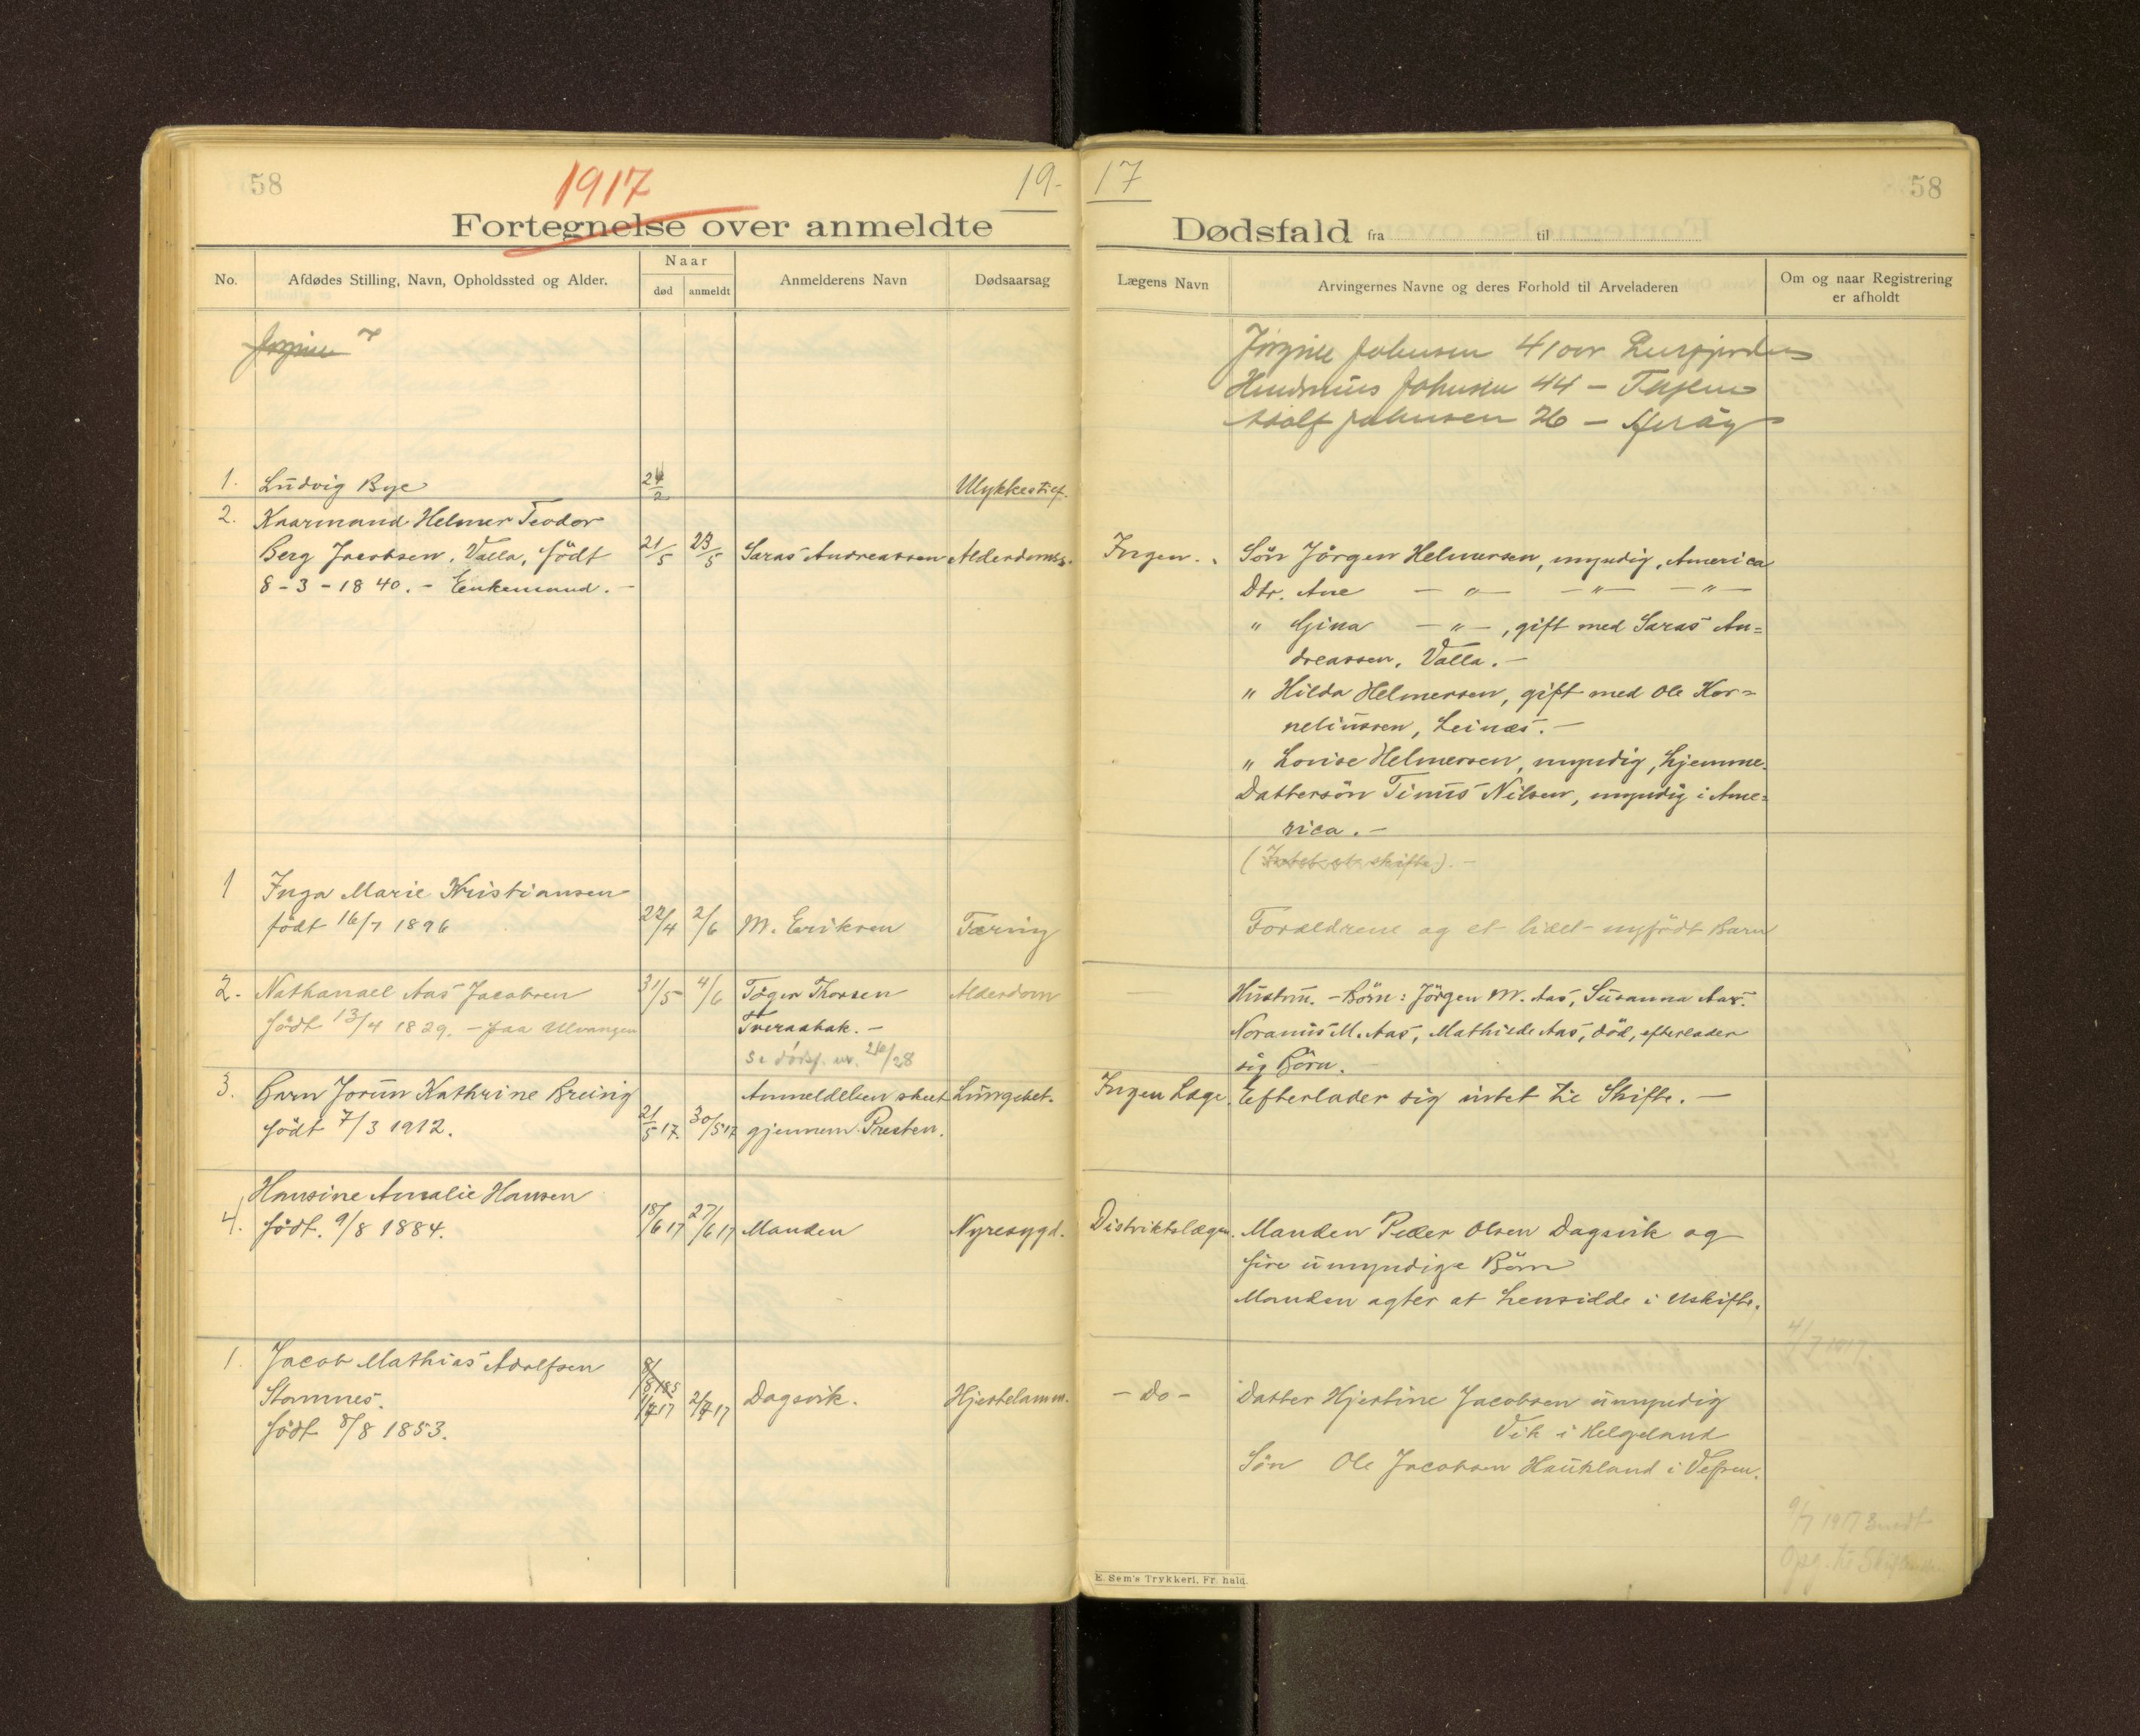 58
1917
19-
17
58
Fortegnelse over anmeldte
Dødsfald fra til
No.
Afdødes Stilling, Navn, Opholdssted og Alder.
Naar
død
anmeldt
Anmelderens Navn
Dødsaarsag
Lægens Navn
Arvingernes Navne og deres Forhold til Arveladeren
Om og naar Registrering
er afholdt
Johnsen 41
Johnsen 44 -
Johnsen 26 - Herøy
1. Ludvig Bye
Ulykkestilf.
2. Kaarmand Helmer Teodor
Berg Jacobsen, Valla, födt 21/5 23/5 Saras Andreassen Alderdomss. Ingen. Sön Jörgen Helmersen, myndig, America
8-3-1840. - Enkemand. -
Dtr. Ane - " - - " - - " -
" Gina - " -, gift med Saras An=
dreassen, Valla. -
" Hilda Helmersen, gift med Ole Kor=
neliussen, Leines. -
" Lovise Helmersen, myndig, hjemme.
Dattersön Tinus Nilsen, myndig i Ame=
rica. -
(Intet at skifte). -
1 Inga Marie Kristiansen
födt 16/7 1896 22/4 2/6 M. Eriksen Tæring Forældrene og et lidet nyfödt Barn
2. Nathanael Aas Jacobsen 31/5 4/6 Töger Thorsen Alderdom Hustru. - Börn: Jörgen M. Aas, Susanna Aas.
födt 13/4 1829. - paa Ulvangen Tveraabak. - Noranus M. Aas, Mathilde Aas, död, efterlader
Se dödsf. nr. 26/28
sig Börn. -
3. Barn Jorun Kathrine Breinig Anmeldelsen skeet Lungebet. Ingen Læge. Efterlader sig intet til Skifte. -
födt 7/3 1912. 21/5 17. 30/5 17 gjennem Presten.
Hansine Amalie Hansen
4. födt. 9/8 1884. 18/6 17 27/6 17 Manden Nyresygd. Distriktslægen. Manden Peder Olsen Dagsvik og
fire umyndige Börn
Manden agter at hensidde i Uskifte.
4/7 1917
1. Jacob Mathias Adolfsen
Stamnes. 2/7 17 Dagsvik. Hjertelamm. - Do - Datter Hjertine Jacobsen umyndig
Vik i Helgeland
födt 8/8 1853.
Sön Ole Jacobsen Haukland i Vefsen.
9/7 1917 Sendt
Opg. til
E. Sem's Trykkeri, Fr. hald.